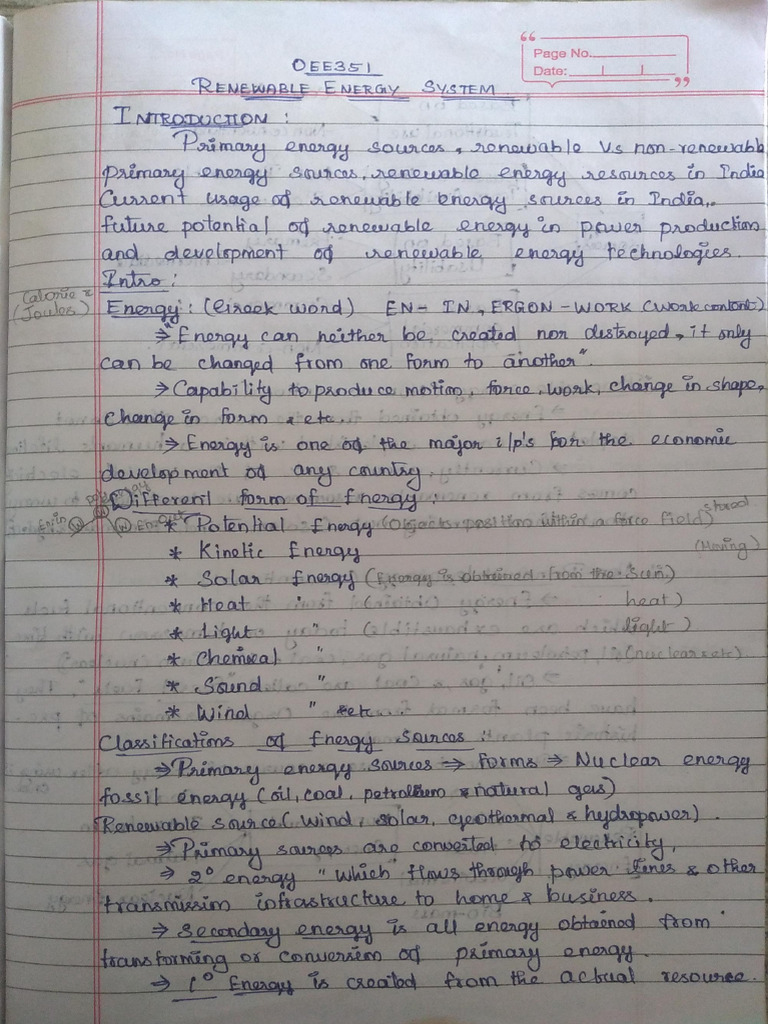 Page No.
Date:
OEE351
RENEWABLE ENERGY SYSTEM
INTRODUCTION :
Primary energy sources, renewable Vs non-renewable
primary energy sources, renewable energy resources in India
Current usage of renewable energy sources in India,
future potential of renewable energy in power production
and development of renewable energy technologies.
Intro :
Calorie &
(Joules)
Energy : (Greek word) EN - IN, ERGON - WORK (Work content)
→ "Energy can neither be created nor destroyed, it only
can be changed from one form to another".
→ Capability to produce motion, force, work, change in shape,
change in form, etc.
→ Energy is one of the major i/p's for the economic
development of any country.
Different form of Energy :
* Potential Energy (Objects position within a force field) stored
* Kinetic Energy (Moving)
* Solar Energy (Energy is obtained from the Sun.)
* Heat " ( heat)
* Light " ( light )
* Chemical "
* Sound "
* Wind " etc...
Classifications of Energy Sources :
→ Primary energy sources → forms → Nuclear energy
fossil energy (oil, coal, petroleum & natural gas)
Renewable source (Wind, solar, geothermal & hydropower).
→ Primary sources are converted to electricity,
→ 2° energy " which flows through power lines & other
transmission infrastructure to home & business.
→ Secondary energy is all energy obtained from
transforming or conversion of primary energy.
→ 1° Energy is created from the actual resource.